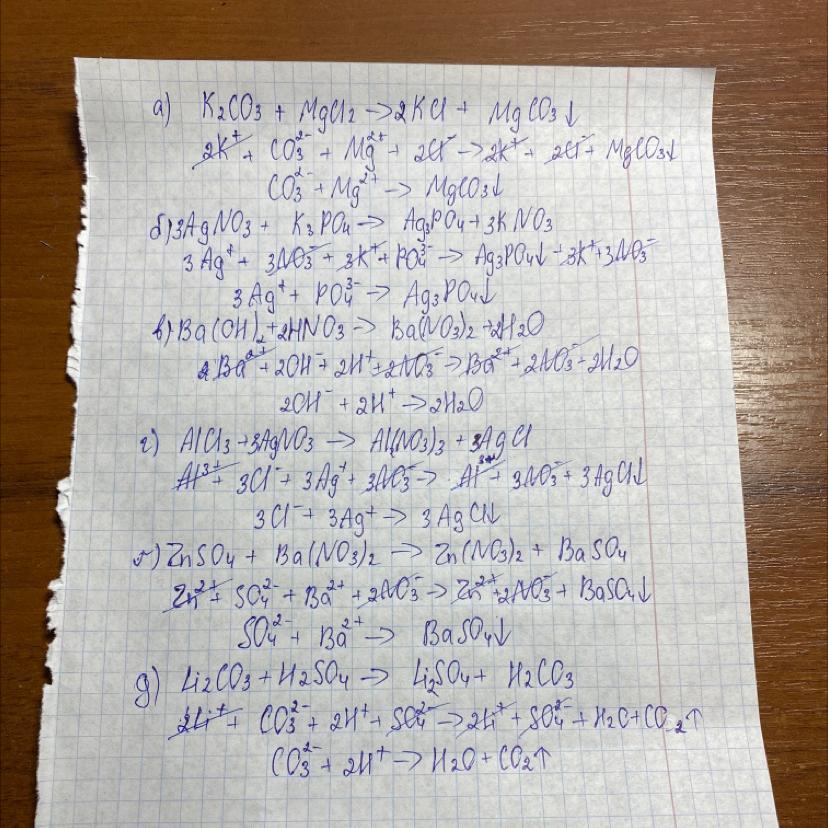 а) K₂CO₃ + MgCl₂ → 2KCl + MgCO₃↓
2K⁺ + CO₃²⁻ + Mg²⁺ + 2Cl⁻ → 2K⁺ + 2Cl⁻ + MgCO₃↓
CO₃²⁻ + Mg²⁺ → MgCO₃↓
б) 3AgNO₃ + K₃PO₄ → Ag₃PO₄ + 3KNO₃
3Ag⁺ + 3NO₃⁻ + 3K⁺ + PO₄³⁻ → Ag₃PO₄↓ + 3K⁺ + 3NO₃⁻
3Ag⁺ + PO₄³⁻ → Ag₃PO₄↓
в) Ba(OH)₂ + 2HNO₃ → Ba(NO₃)₂ + 2H₂O
Ba²⁺ + 2OH⁻ + 2H⁺ + 2NO₃⁻ → Ba²⁺ + 2NO₃⁻ + 2H₂O
2OH⁻ + 2H⁺ → 2H₂O
г) AlCl₃ + 3AgNO₃ → Al(NO₃)₃ + 3AgCl
Al³⁺ + 3Cl⁻ + 3Ag⁺ + 3NO₃⁻ → Al³⁺ + 3NO₃⁻ + 3AgCl↓
3Cl⁻ + 3Ag⁺ → 3AgCl↓
ZnSO₄ + Ba(NO₃)₂ → Zn(NO₃)₂ + BaSO₄
Zn²⁺ + SO₄²⁻ + Ba²⁺ + 2NO₃⁻ → Zn²⁺ + 2NO₃⁻ + BaSO₄↓
SO₄²⁻ + Ba²⁺ → BaSO₄↓
д) Li₂CO₃ + H₂SO₄ → Li₂SO₄ + H₂CO₃
2Li⁺ + CO₃²⁻ + 2H⁺ + SO₄²⁻ → 2Li⁺ + SO₄²⁻ + H₂O + CO₂↑
CO₃²⁻ + 2H⁺ → H₂O + CO₂↑